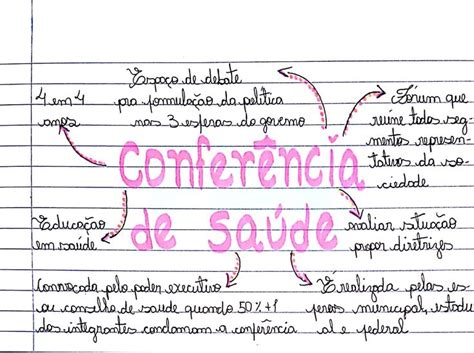 Espaço de debate
pra formulação da política
nas 3 esferas do governo
4 em 4
anos
Fórum que
reúne todos seg-
mentos represen-
tativos da so-
ciedade
Conferência
de saúde
Educação
em saúde
avaliar situação
propor diretrizes
Convocada pelo poder executivo
ou conselho de saude quando 50%+1
dos integrantes condamam a conferência
É realizada pelas es-
feras municipal, estadu-
al e federal